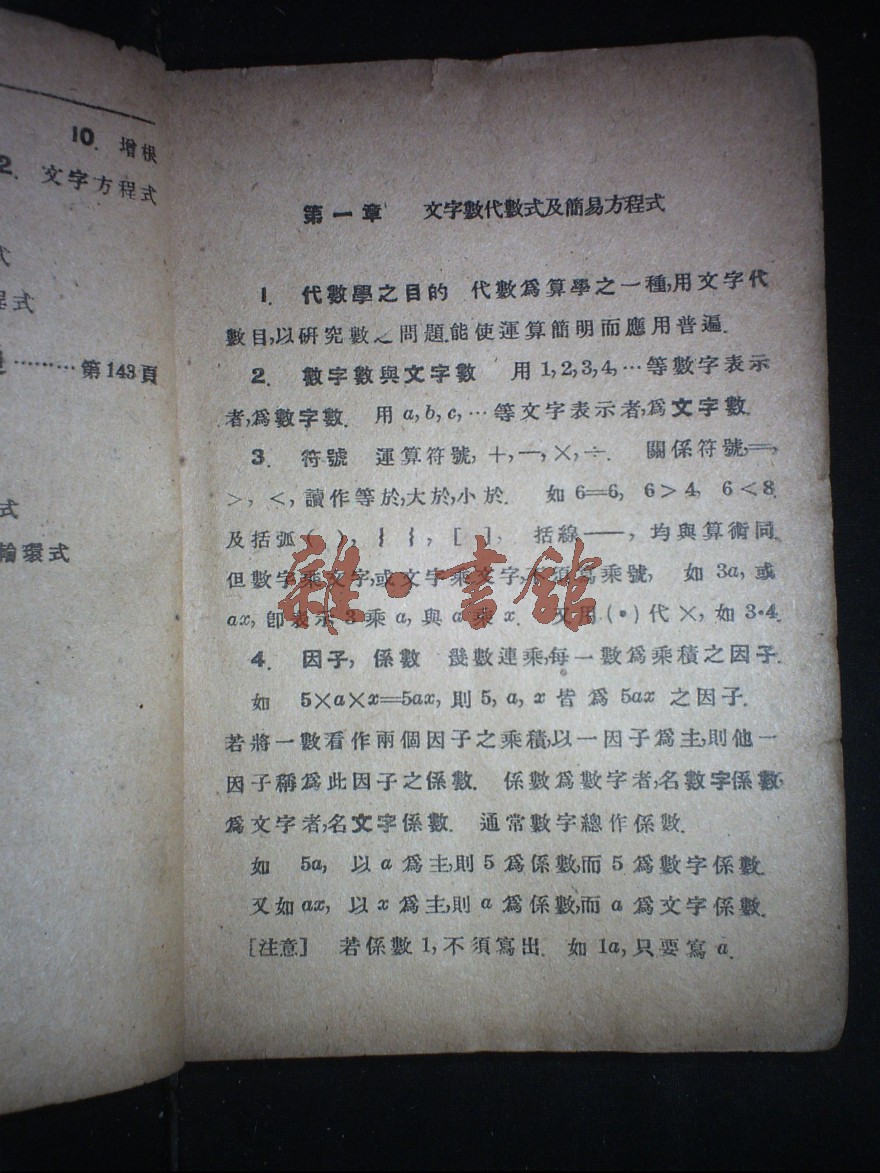 10. 增根
2. 文字方程式
式
程式
第143頁
式
輪環式
第一章 文字數代數式及簡易方程式
1. 代數學之目的 代數爲算學之一種,用文字代
數目,以研究數之問題.能使運算簡明而應用普遍.
2. 數字數與文字數 用1,2,3,4,…等數字表示
者,爲數字數. 用a,b,c,…等文字表示者,爲文字數.
3. 符號 運算符號,+,—,×,÷. 關係符號,=,
>, <,讀作等於,大於,小於. 如6=6, 6>4, 6<8.
及括弧( ), { {, [ ], 括線——, 均與算術同.
但數字乘文字,或文字乘文字,不須寫乘號, 如3a, 或
ax, 卽表示3乘a, 與a乘x. 又用(•)代×, 如3•4.
4. 因子, 係數 幾數連乘,每一數爲乘積之因子.
如 5×a×x=5ax, 則5, a, x皆爲5ax之因子.
若將一數看作兩個因子之乘積,以一因子爲主,則他一
因子稱爲此因子之係數. 係數爲數字者,名數字係數,
爲文字者,名文字係數. 通常數字總作係數.
如 5a, 以a爲主,則5爲係數,而5爲數字係數.
又如ax, 以x爲主,則a爲係數,而a爲文字係數.
[注意] 若係數1,不須寫出. 如1a,只要寫a.
雜·書館